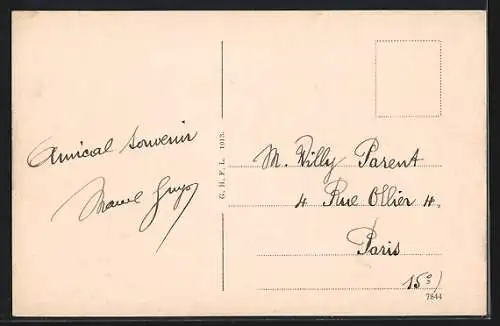 Amical souvenir
Marcel Guyot
G. H. F. L. 1013.
M. Willy Parent
4 Rue Ollier 4.
Paris
15e)
7844